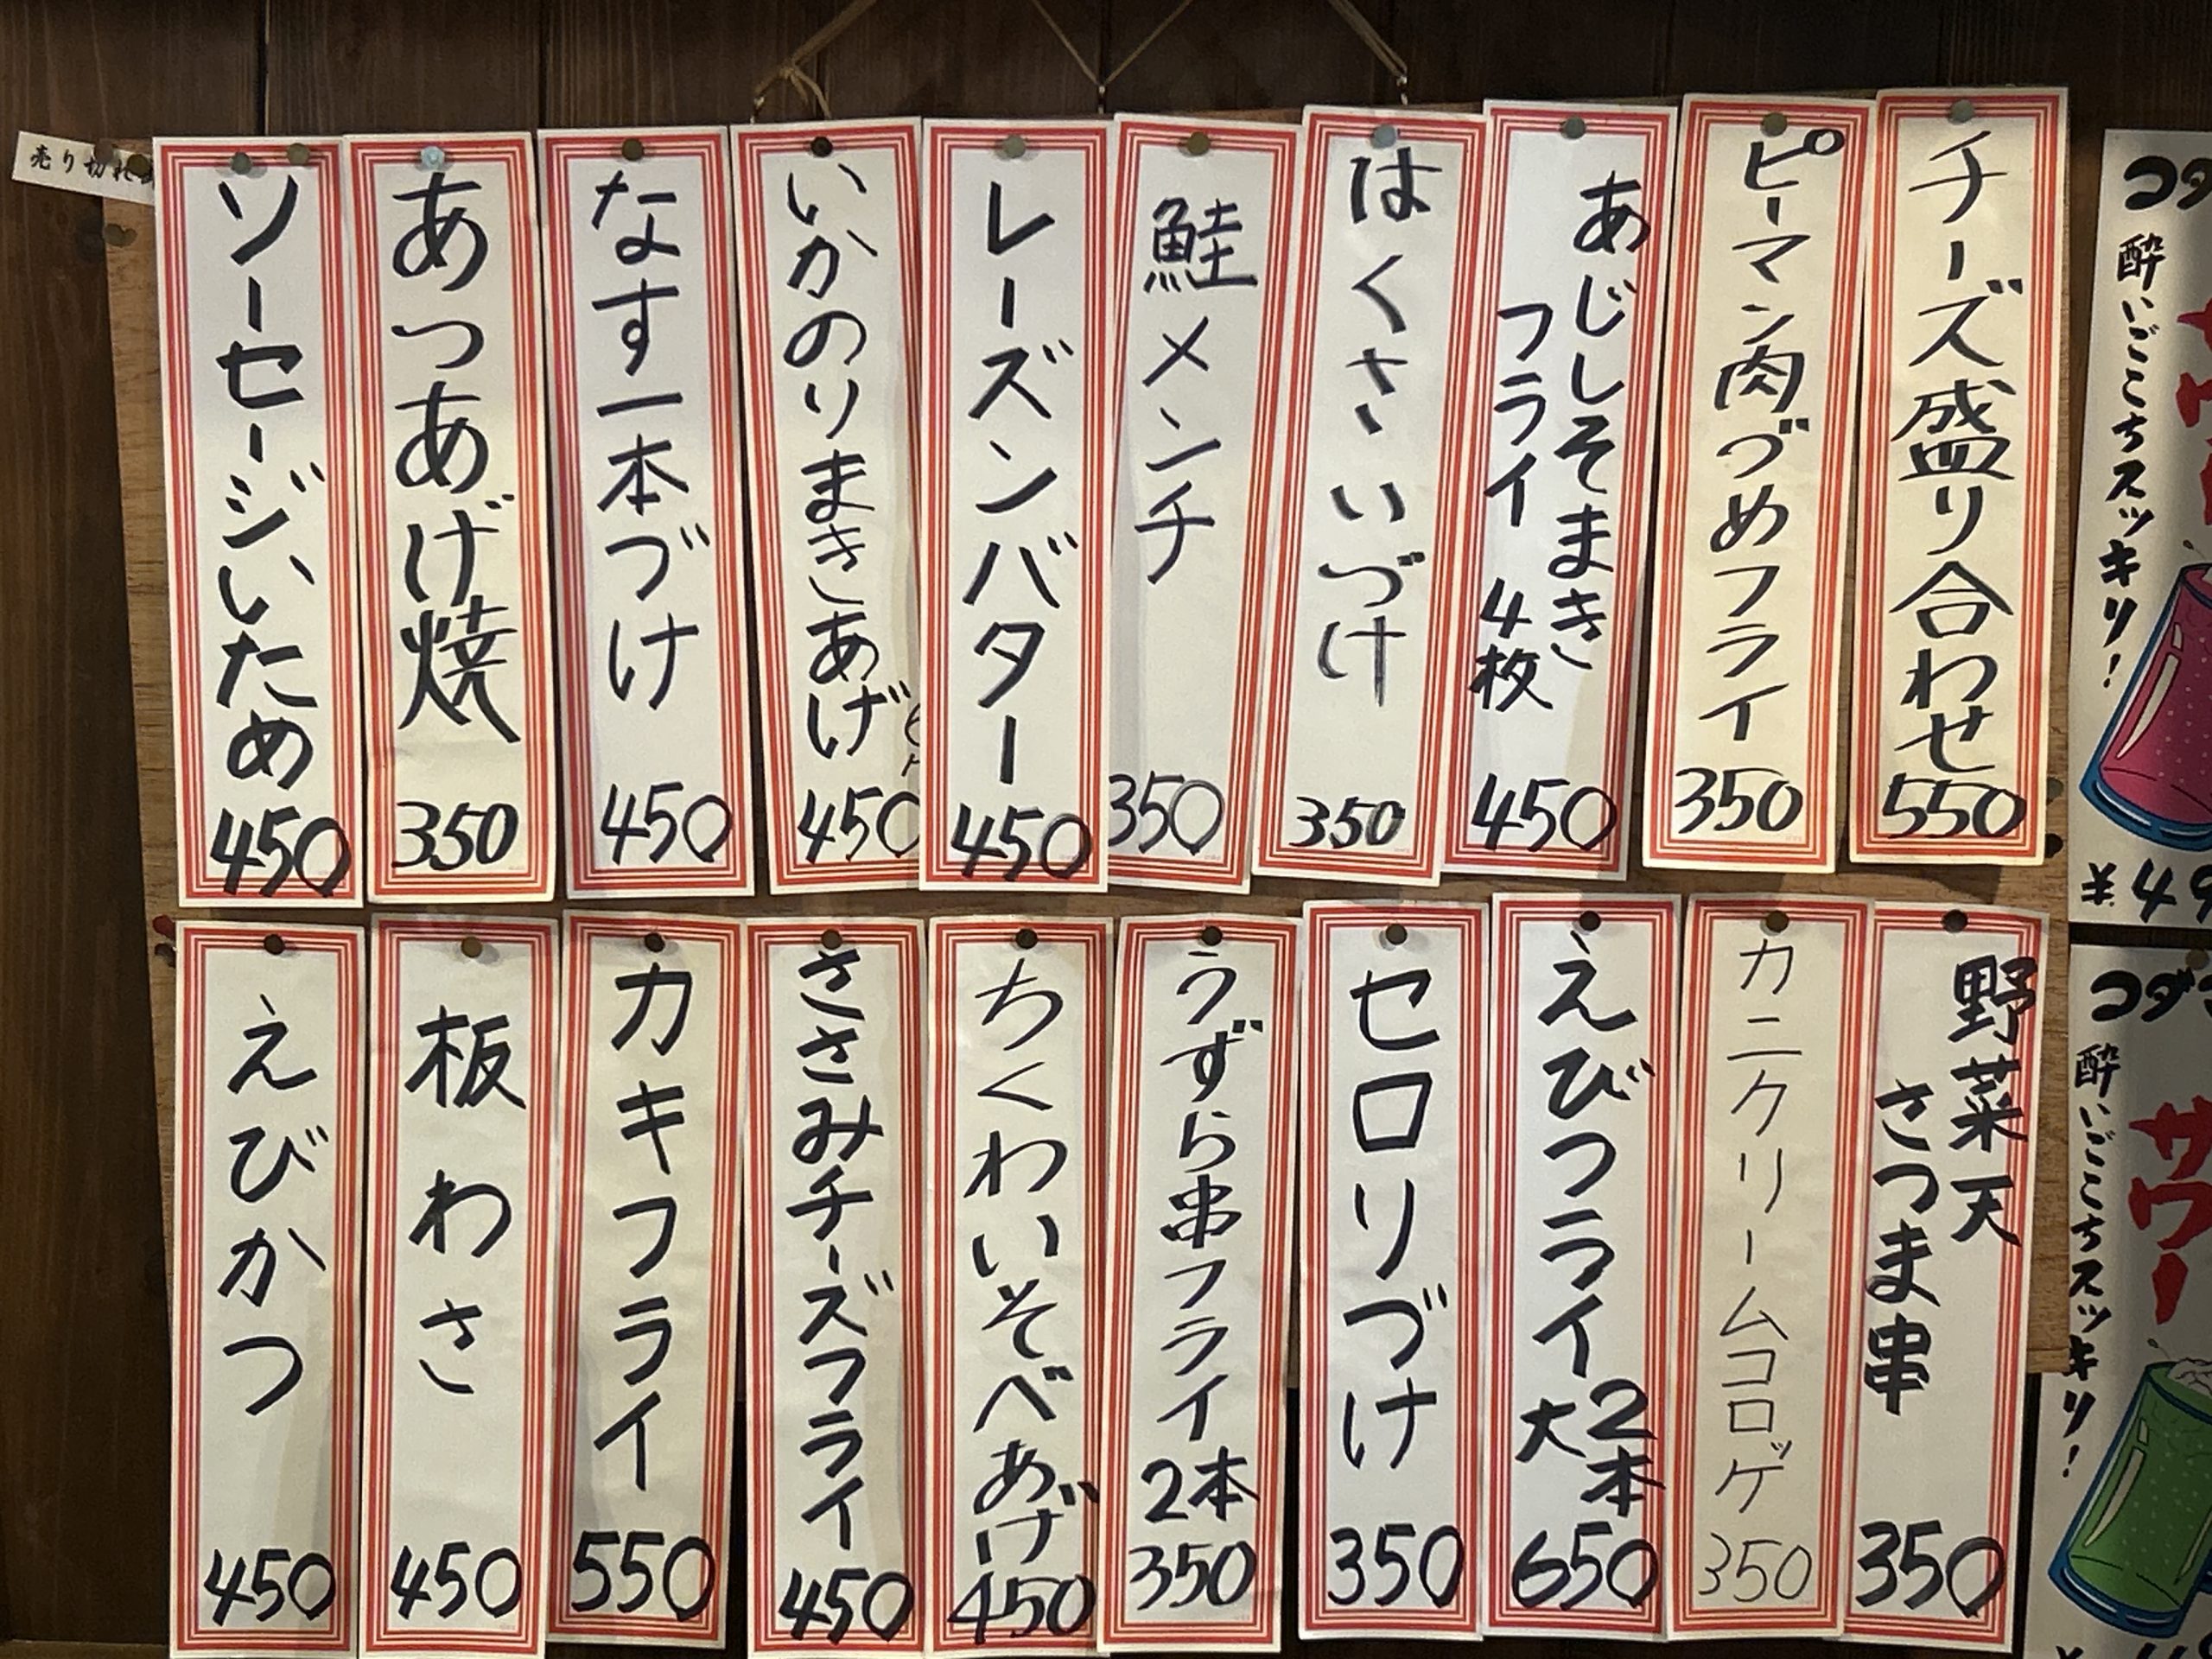 チーズ盛り合わせ
550
ピーマン肉づめフライ
350
あじしそまき
フライ 4枚
450
はくさいづけ
350
鮭メンチ
350
レーズンバター
450
いかのりまきあげ
450
なす一本づけ
450
あつあげ焼
350
ソーセージいため
450
売り切れ
野菜天
さつま串
350
カニクリームコロッケ
350
えびフライ
大2本
650
セロリづけ
350
うずら串フライ
2本
350
ちくわいそべあげ
450
ささみチーズフライ
450
カキフライ
550
板わさ
450
えびかつ
450
コダ
酔いごこちスッキリ!
¥49
コダ
サワー
酔いごこちスッキリ!